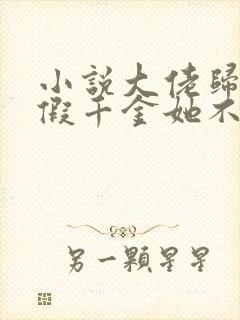 小說大佬歸
假千金她不
另一顆星星